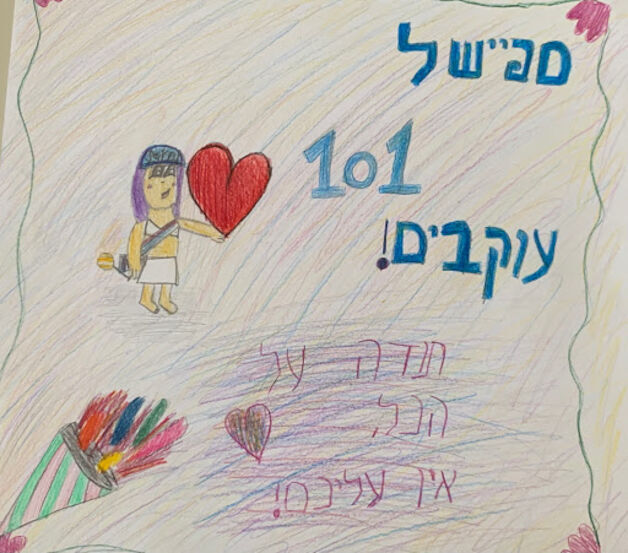 ספיישל
101
עוקבים!
תודה על
הכל
אין עליכם!